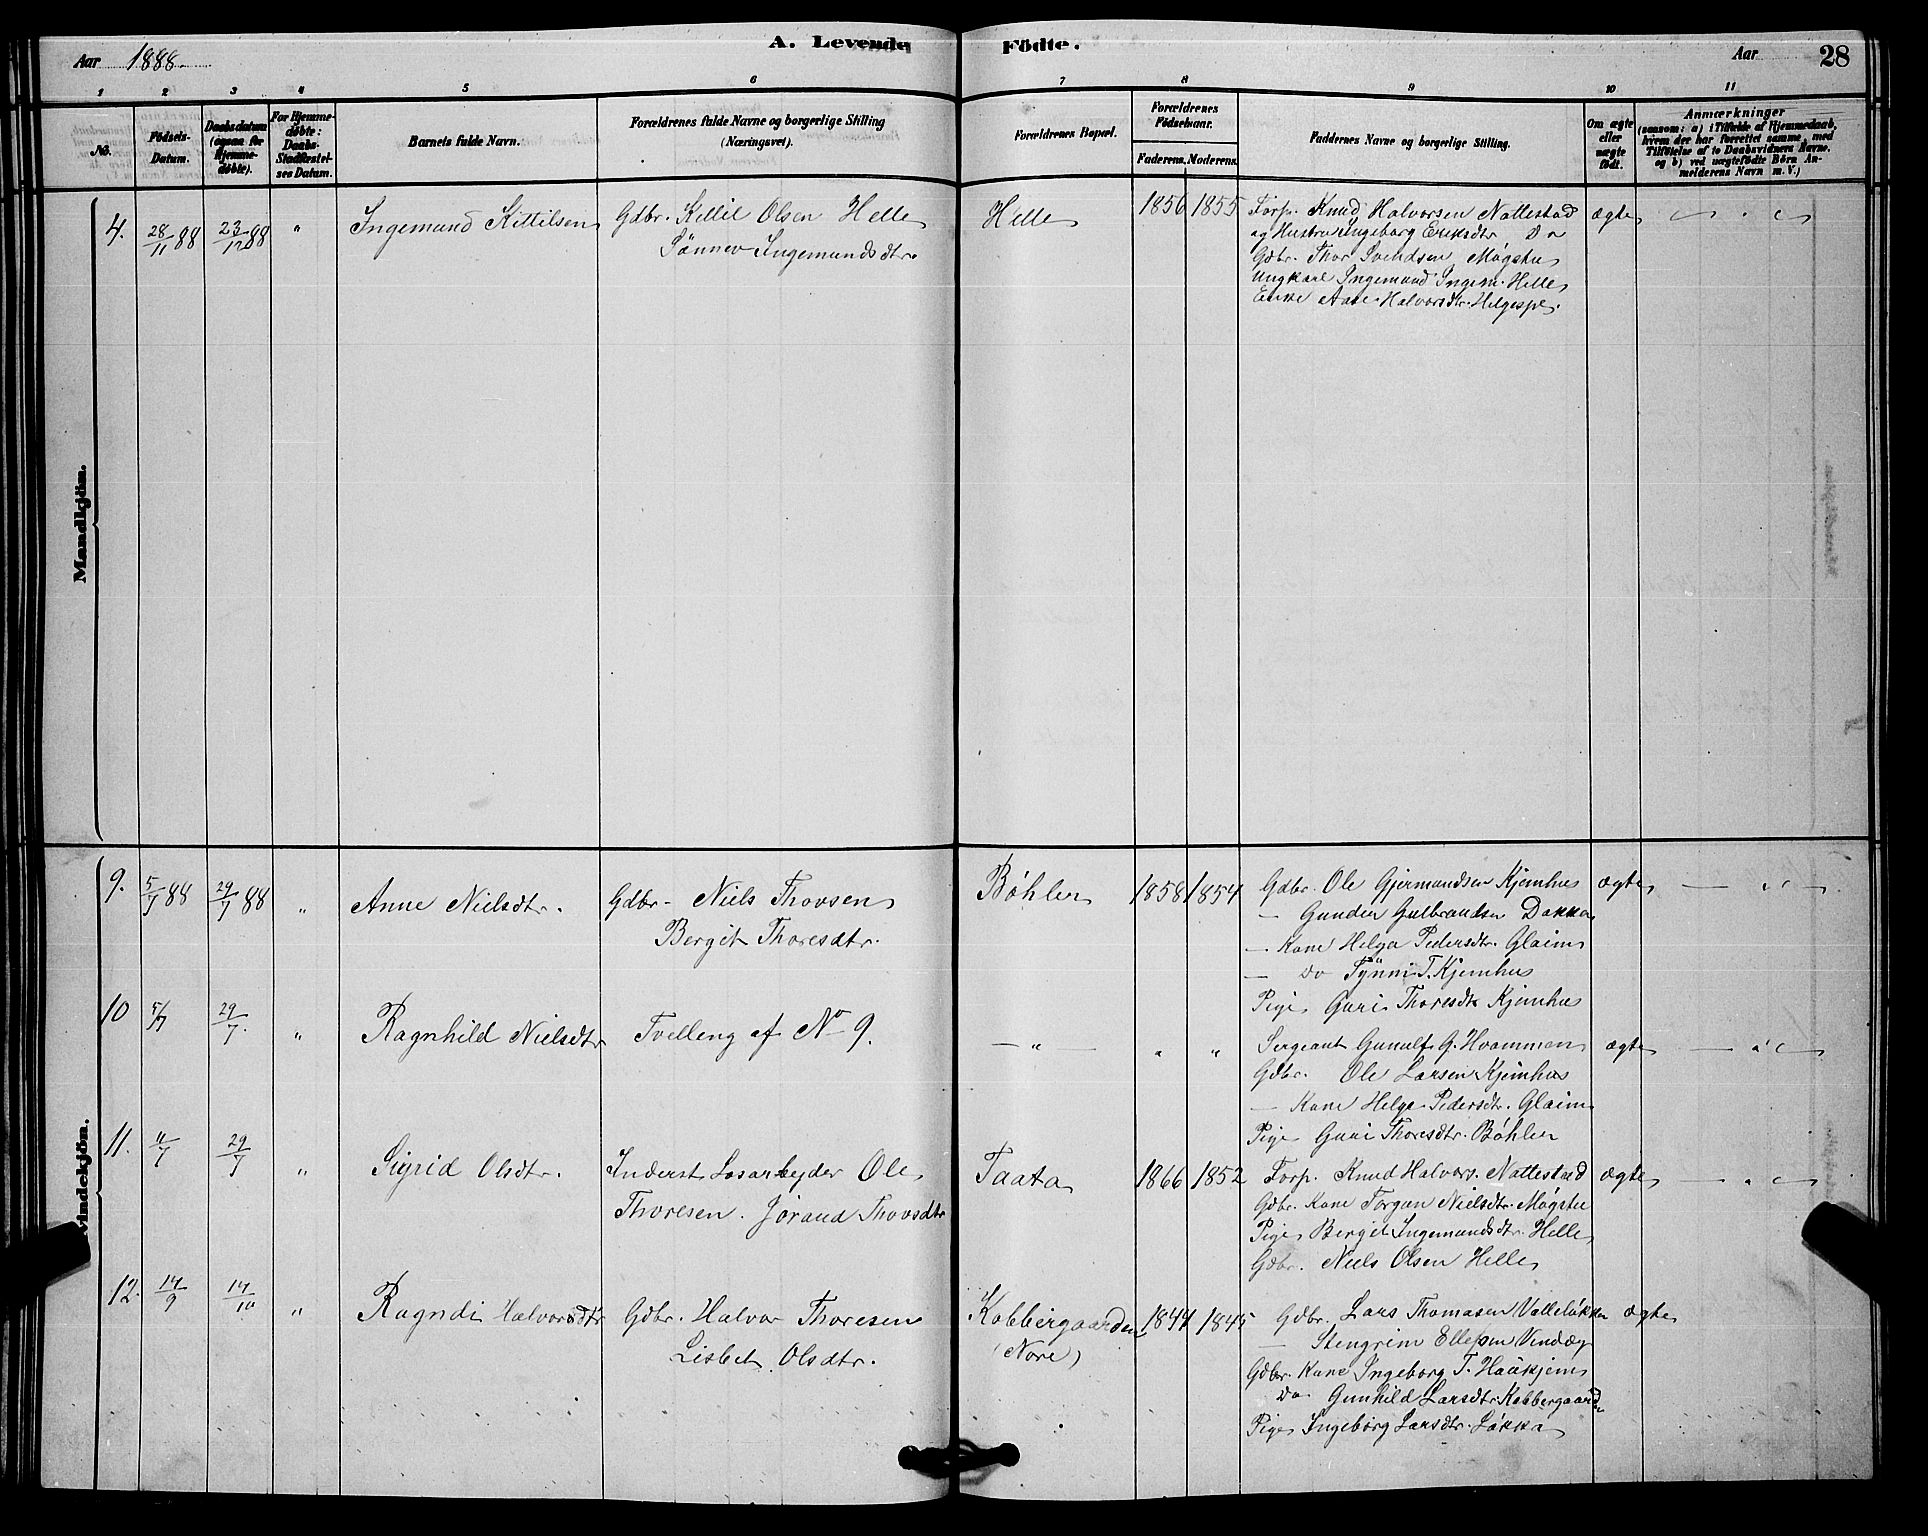 A. Levende Födte.
Aar 1888. Aar 28
1 2 3 4 5 6 7 8 9 10 11
No. Födsels-Datum. Daabsdatum (ogsaa for Hjemme-döbte). For Hjemme-döbte: Daabs-Stadfæstel-ses Datum. Barnets fulde Navn. Forældrenes fulde Navne og borgerlige Stilling (Næringsvei). Forældrenes Bopæl. Forældrenes Födselsaar. Faderens. Moderens. Faddernes Navne og borgerlige Stilling. Om ægte eller uægte födt. Anmærkninger (saasom: a) i Tilfælde af Hjemmedaab, hvem der har forrettet samme, med Tilföielse af to Daabsvidners Navne, og b) ved uægtefödte Börn An-melderens Navn m. V.)
Mandkjön.
4. 28/11 88 23/12 88 " Ingemund Kittilsen Gdbr. Kittil Olsen Helle Helle 1856 1855 Forp. Knud Halvorsen Nattestad ægte
Sønnev Ingemundsdtr. og Hustru Ingeborg Eriksdtr Do
Gdbr. Thor Svendsen Møgstu
Ungkarl Ingemund Ingem. Helle
Enke Ane Halvorsdtr. Helgespl.
Kvindekjön.
9. 5/7 88 29/7 88 " Anne Nielsdtr. Gdbr. Niels Thorsen Bøhler 1858 1854 Gdbr. Ole Gjermundsen Kjemhus ægte
Bergit Thoresdtr. — Gunder Gulbrandsen Dokka
— Kone Helga Pedersdtr. Glaim
— Do Synni T. Kjemhus
Pige Guri Thoresdtr Kjemhus
10 5/7 29/7. " Ragnhild Nielsdtr Tvilling af No 9. — " — " " Sergeant Gunulf G. Hvammen ægte
Gdbr. Ole Larsen Kjemhus
— Kone Helge Pedersdtr. Glaim
Pige Guri Thoresdtr. Bøhler
11. 11/7 29/7 " Sigrid Olsdtr. Inderst Løsarbejder Ole Taata 1866 1852 Forp. Knud Halvors. Nattestad ægte
Thoresen. Jørand Thorsdtr Gdbr. Kone Torgun Nielsdtr. Møgstu
Pige Bergit Ingemundsdtr. Helle
Gdbr. Niels Olsen Helle
12. 14/9 14/10 " Ragndi Halvorsdtr Gdbr. Halvor Thoresen Kobbergaarden 1844 1845 Gdbr. Lars Thomasen Valleløkken ægte
Lisbet Olsdtr. (Nore) — Stengrim Ellefsen Vindeg
Gdbr. Kone Ingeborg T. Haakjem
Do Gunhild Larsdtr. Kobbergaarden
Pige Ingeborg Larsdtr. Løkka